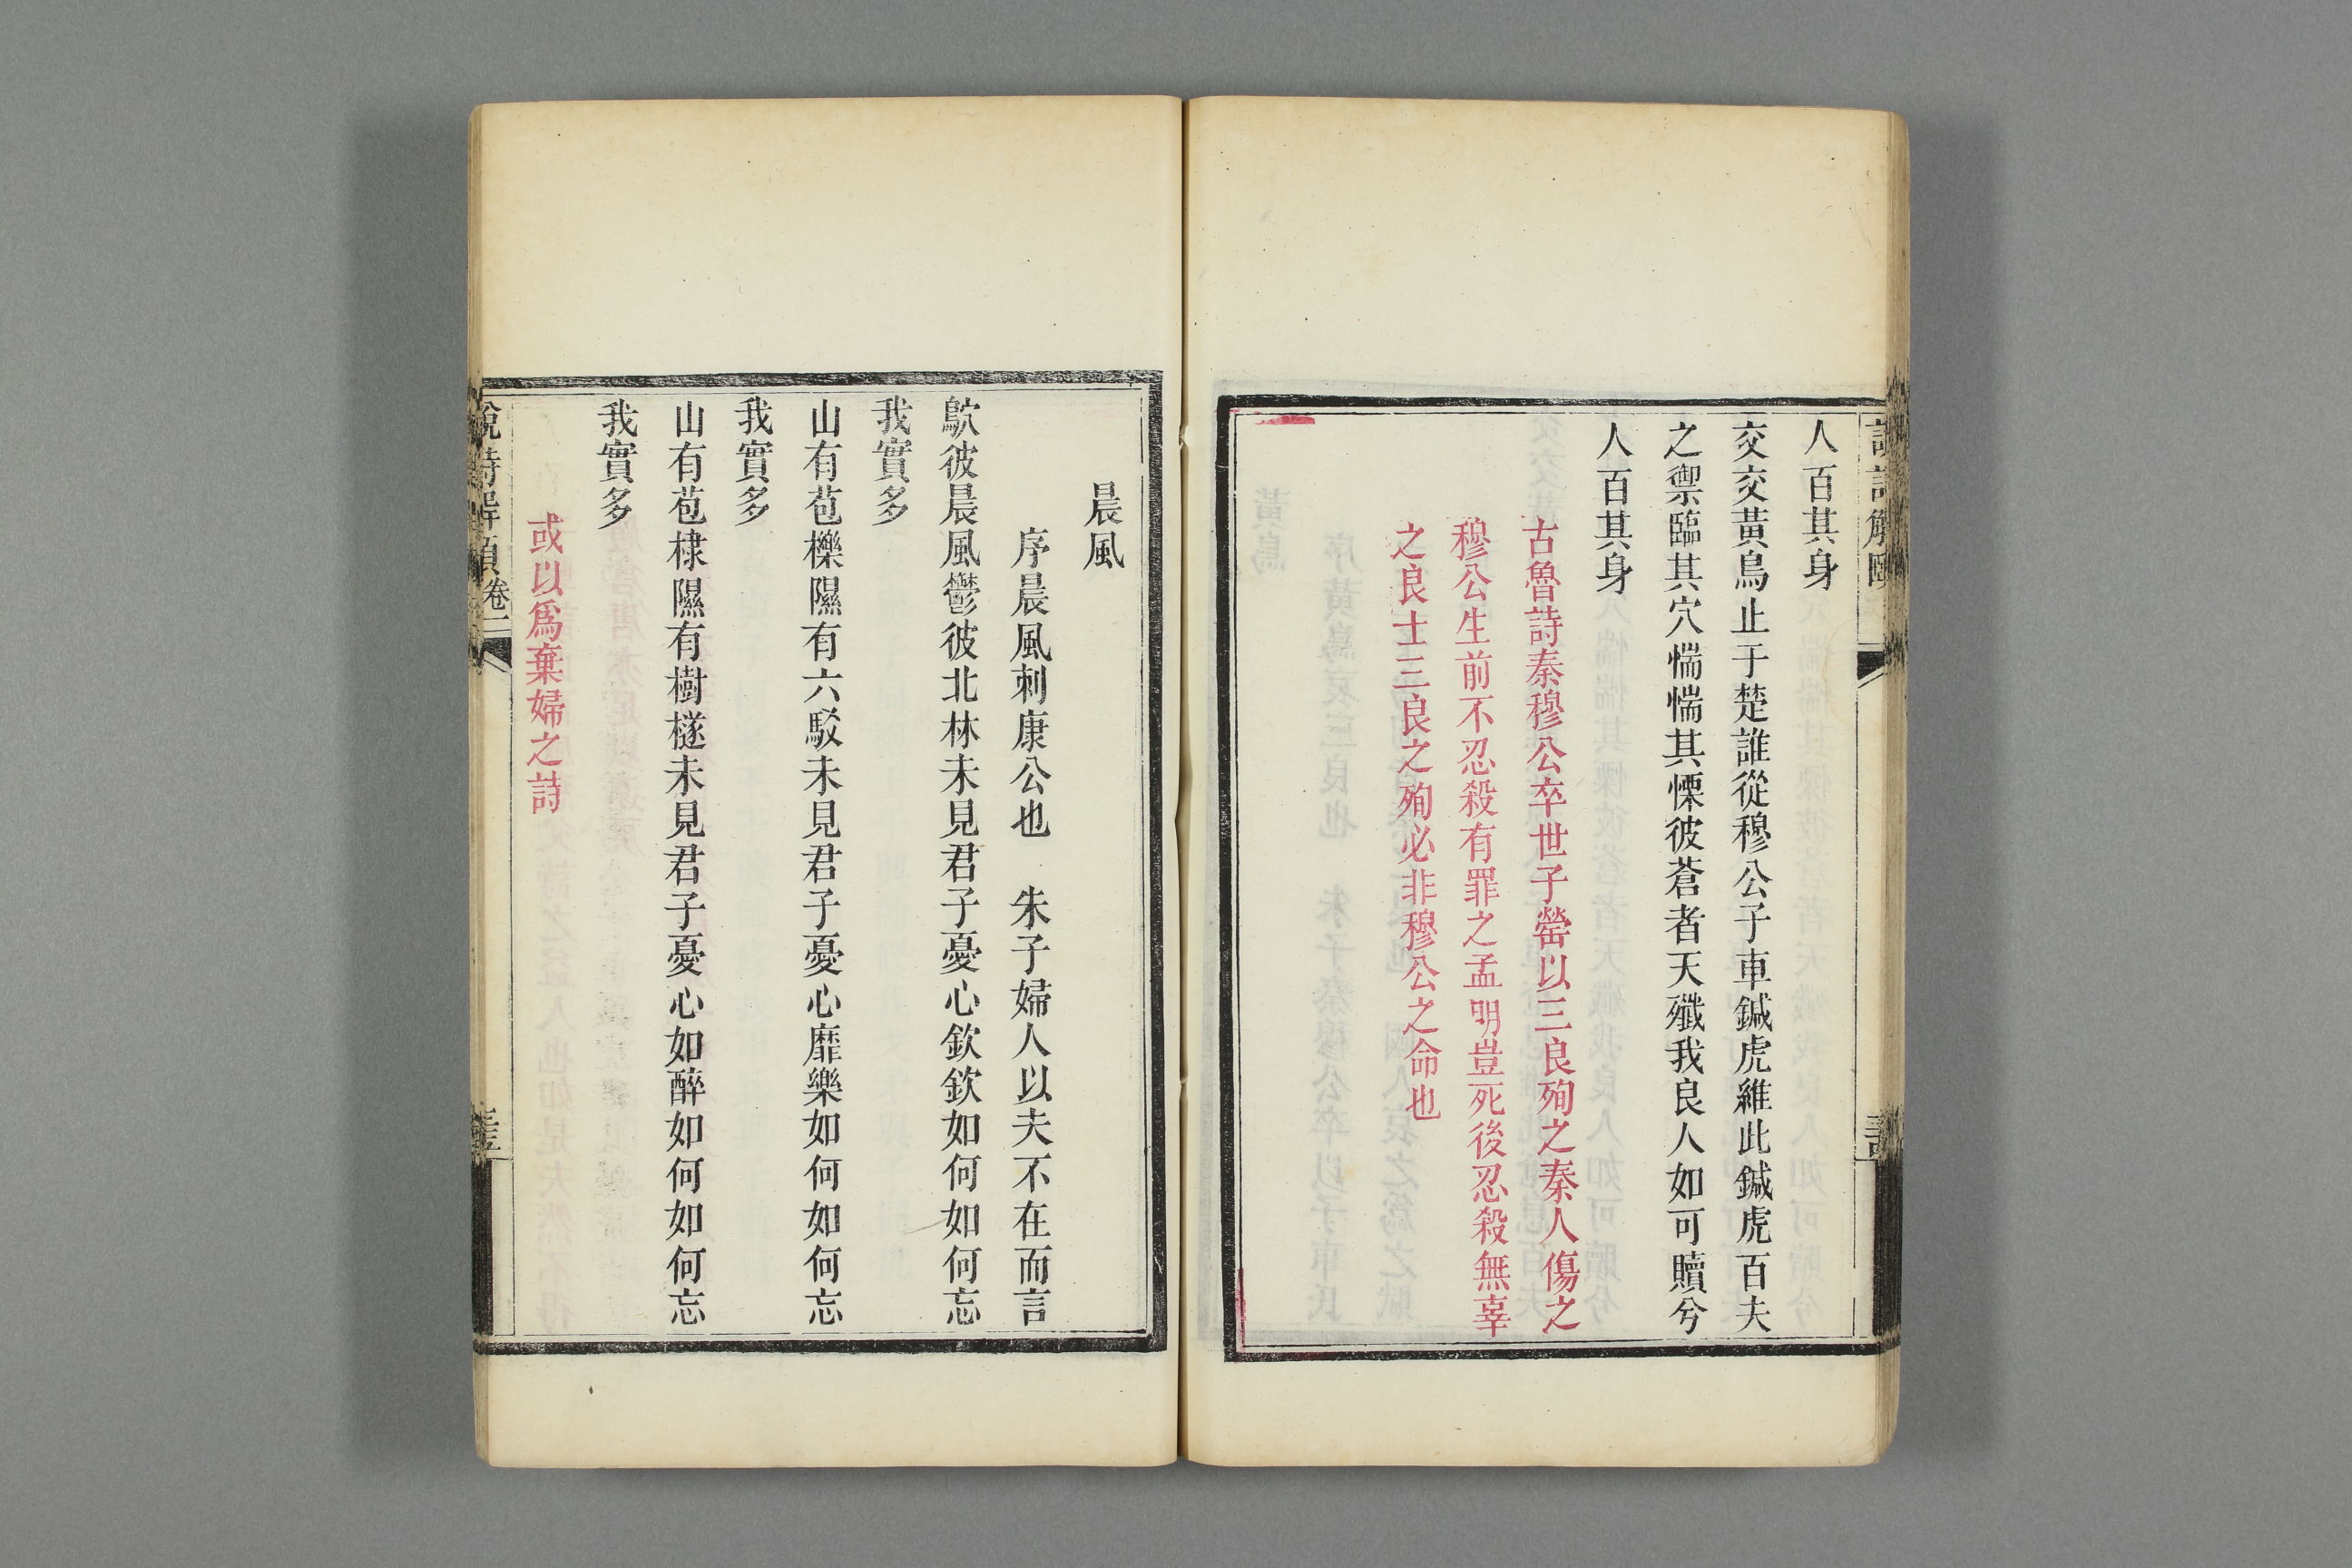 人百其身
交交黃鳥止于楚誰從穆公子車鍼虎維此鍼虎百夫
之禦臨其穴惴惴其慄彼蒼者天殲我良人如可贖兮
人百其身
古魯詩秦穆公卒世子罃以三良殉之秦人傷之
穆公生前不忍殺有罪之孟明豈死後忍殺無辜
之良士三良之殉必非穆公之命也
晨風
序晨風刺康公也　朱子婦人以夫不在而言
鴥彼晨風鬱彼北林未見君子憂心欽欽如何如何忘
我實多
山有苞櫟隰有六駁未見君子憂心靡樂如何如何忘
我實多
山有苞棣隰有樹檖未見君子憂心如醉如何如何忘
我實多
或以爲棄婦之詩
說詩解頤卷二